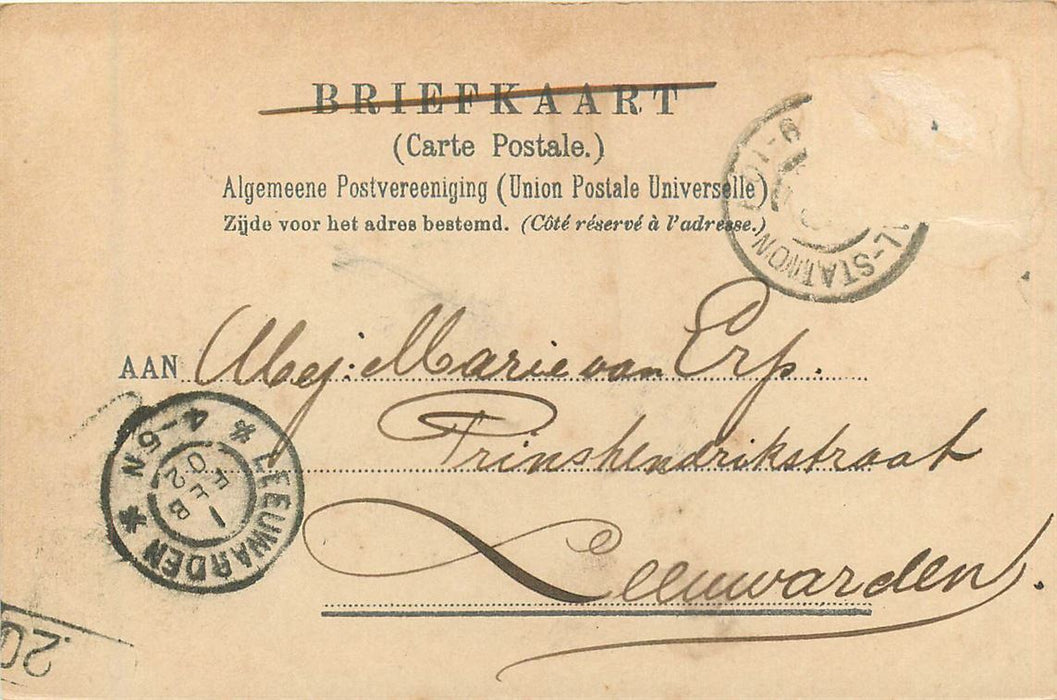 BRIEFKAART
(Carte Postale.)
Algemeene Postvereeniging (Union Postale Universelle)
Zijde voor het adres bestemd. (Côté réservé à l'adresse.)
AAN Mej: Marie van Erp.
Prinshendrikstraat
Leeuwarden.
* LEEUWARDEN *
4-5 N
1
FEB
02
L-STATION
20